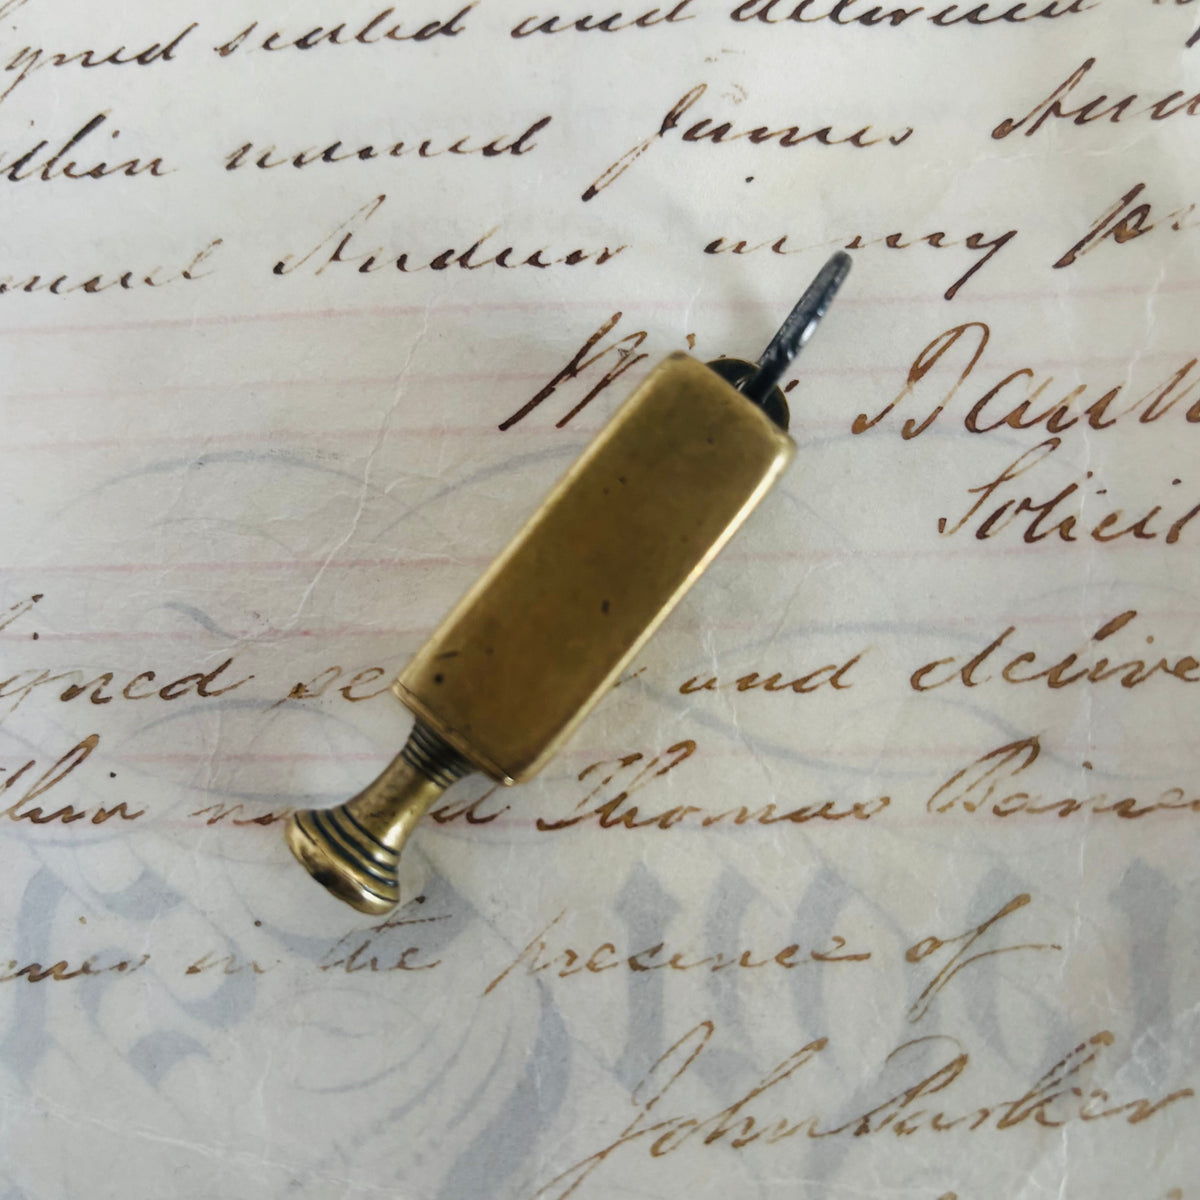 igned sealed and delivered
ithin named James Andr
muel Andrew in my pr
Wm Daw
Solicit
igned se and delive
thin na d Thomas Baine
aines in the presence of
John Parker